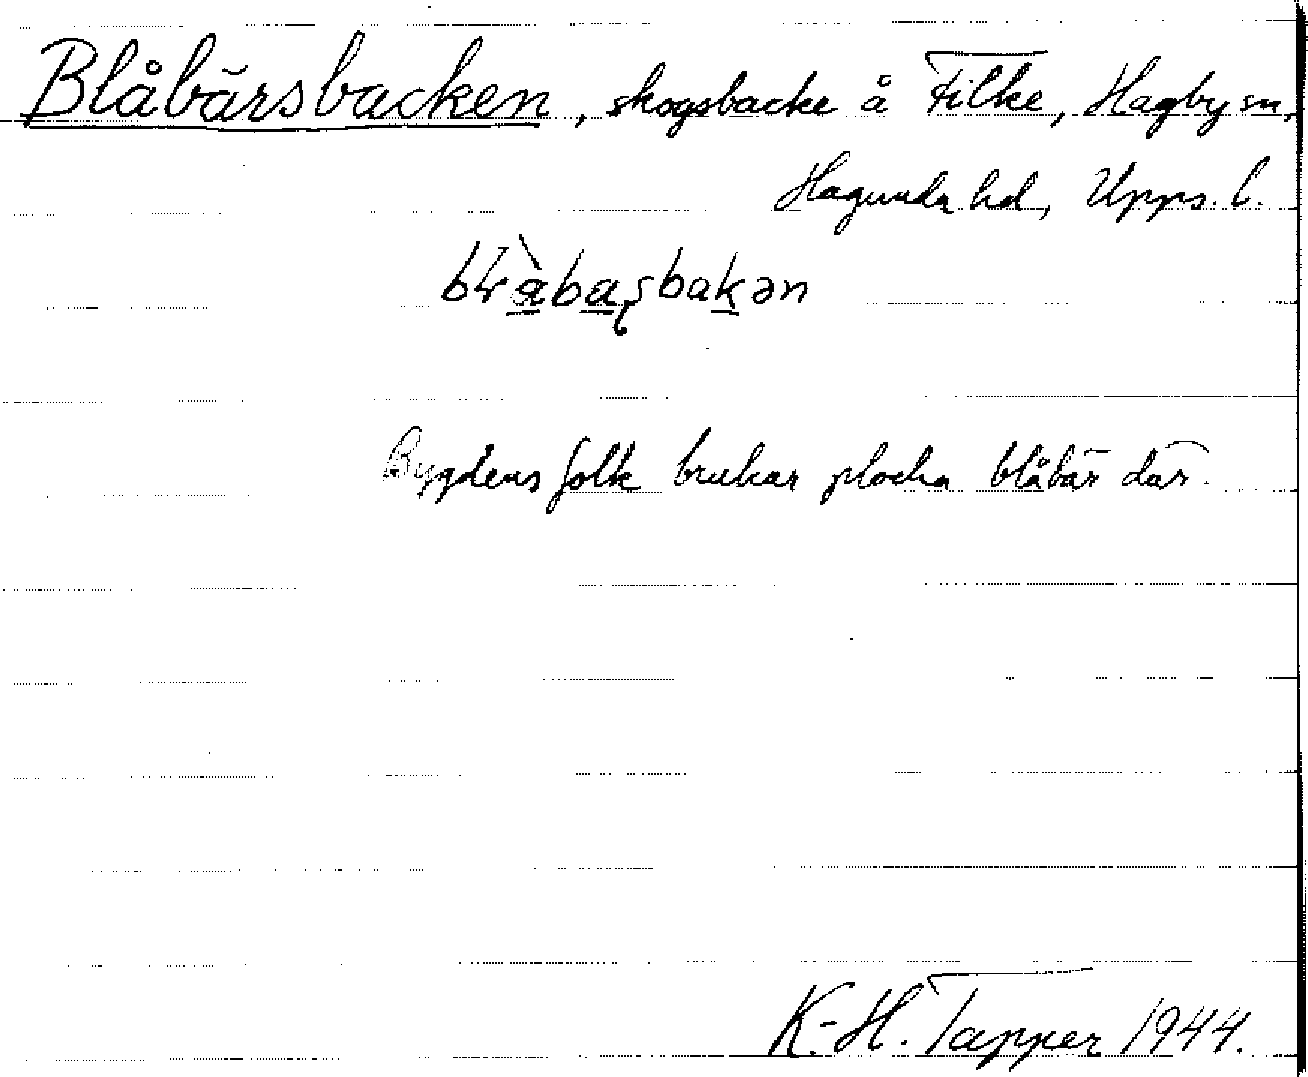 Blåbärsbacken, skogsbacke å Filke, Hagby sn,
Hagunda hd, Upps. l.
bɫɑ̀bɑʂbakən
Bygdens folk brukar plocka blåbär där.
K.-H. Tapper 1944.